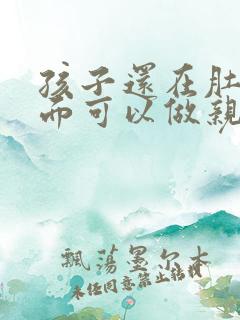 孩子還在肚
而可以做親
飄蕩墨尔本
未任同意禁止転載